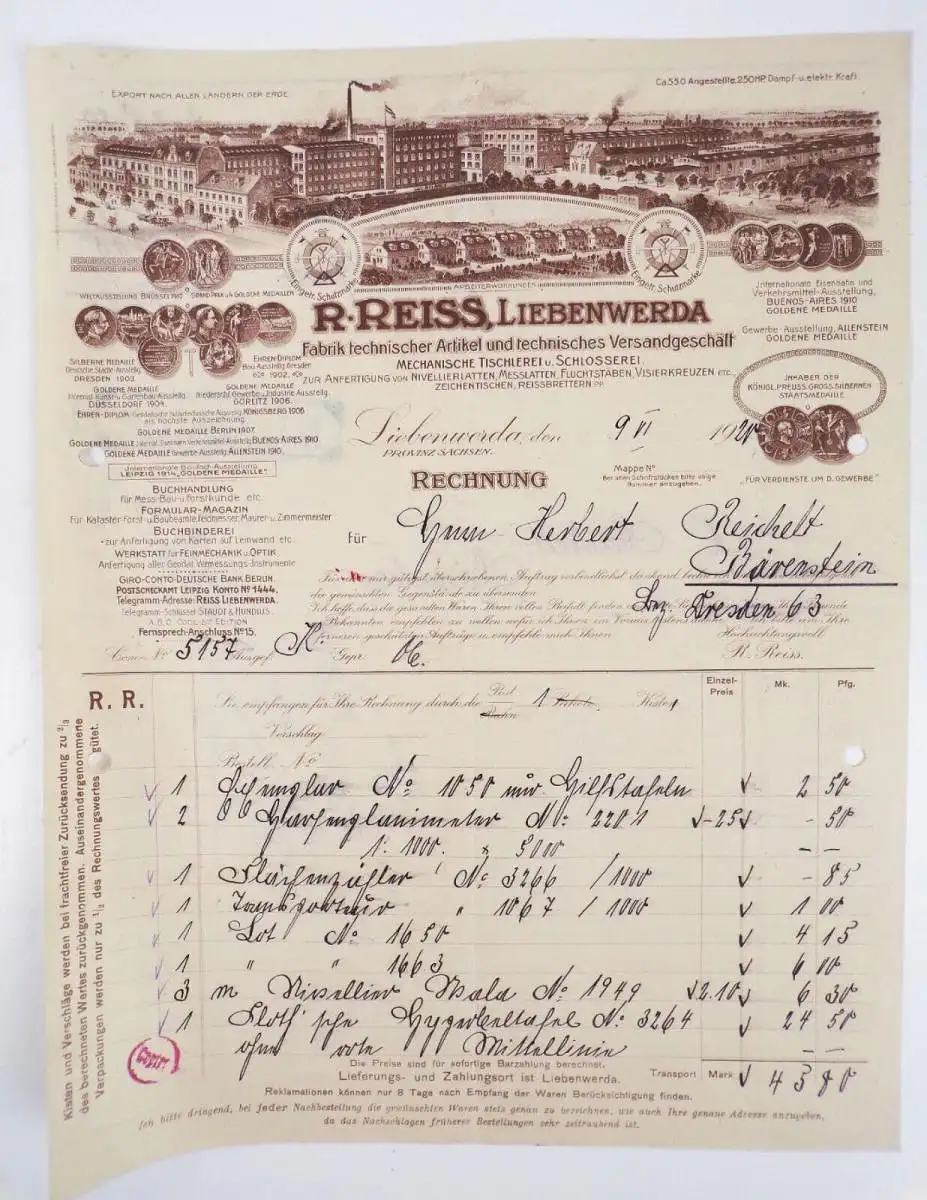 EXPORT NACH ALLEN LÄNDERN DER ERDE
Ca. 550 Angestellte, 250 HP. Dampf- u. elektr. Kraft.
Eingetr. Schutzmarke
Eingetr. Schutzmarke
ARBEITERWOHNUNGEN
WELTAUSSTELLUNG BRÜSSEL 1910
GRAND PRIX u. 4 GOLDENE MEDAILLEN
R. REISS, LIEBENWERDA
Fabrik technischer Artikel und technisches Versandgeschäft
MECHANISCHE TISCHLEREI u. SCHLOSSEREI
ZUR ANFERTIGUNG VON NIVELLIERLATTEN, MESSLATTEN, FLUCHTSTÄBEN, VISIERKREUZEN ETC.,
ZEICHENTISCHEN, REISSBRETTERN
Internationale Eisenbahn und
Verkehrsmittel-Ausstellung,
BUENOS-AIRES 1910
GOLDENE MEDAILLE
Gewerbe-Ausstellung, ALLENSTEIN
GOLDENE MEDAILLE
INHABER DER
KÖNIGL. PREUSS. GROSS. SILBERNEN
STAATSMEDAILLE
"FÜR VERDIENSTE UM D. GEWERBE"
SILBERNE MEDAILLE
Deutsche Städte-Ausstellg.
DRESDEN 1903.
EHREN-DIPLOM
Bau-Ausstellg. Dresden
1902.
GOLDENE MEDAILLE
Internat. Kunst- u. Gartenbau-Ausstellg.
DÜSSELDORF 1904.
GOLDENE MEDAILLE
Niederschl. Gewerbe u. Industrie-Ausstellg.
GÖRLITZ 1905.
KÖNIGSBERG 1906
als höchste Auszeichnung
GOLDENE MEDAILLE BERLIN 1907.
GOLDENE MEDAILLE BUENOS-AIRES 1910.
GOLDENE MEDAILLE Gewerbe-Ausstellg. ALLENSTEIN 1910.
LEIPZIG 1914 „GOLDENE MEDAILLE"
Liebenwerda, den 9 VI 1920
PROVINZ SACHSEN.
RECHNUNG
Mappe No
Bei allen Schriftstücken bitte obige
Nummer anzugeben.
BUCHHANDLUNG
für Mess-Bau- u. Forstkunde etc.
FORMULAR-MAGAZIN
Für Kataster-Forst- u. Baubeamte, Feldmesser, Maurer- u. Zimmermeister
BUCHBINDEREI
zur Anfertigung von Karten auf Leinwand etc.
WERKSTATT für FEINMECHANIK u. OPTIK
Anfertigung aller Geodät. Vermessungs-Instrumente
GIRO-CONTO-DEUTSCHE BANK BERLIN.
POSTSCHECKAMT LEIPZIG KONTO No 1444.
Telegramm-Adresse: REISS LIEBENWERDA.
Telegramm-Schlüssel STAUDT & HUNDIUS.
A.B.C. CODE 5th EDITION
Fernsprech-Anschluss No 15.
für Herrn Herbert Reichelt
Bärenstein
Bez. Dresden 63
Hochachtungsvoll
R. Reiss.
Conto No 5157 Ausgef. K. Gepr.
R. R.
Einzel-Preis
Mk.
Pfg.
Sie empfangen für Ihre Rechnung durch die Post Bahn 1 Kiste
Verschlag
Bestell. No
1 Exemplar No 1050 Hilfstafeln 2 50
2 Harfenplanimeter No 2201 -25 - 50
1: 1000. 5000 - -
1 Flächenzähler No 3266 /1000 - 85
1 Transporteur " 1067 /1000 1 00
1 Lot No 1650 4 15
1 " " 1663 6 00
3 m Nivellier Skala No 1949 2.10 6 30
1 Kloth'sche Hyperbeltafel No 3264 24 50
ohne rote Mittellinie - -
Die Preise sind für sofortige Barzahlung berechnet.
Lieferungs- und Zahlungsort ist Liebenwerda.
Transport Mark 45 80
Reklamationen können nur 8 Tage nach Empfang der Waren Berücksichtigung finden.
Ich bitte dringend, bei jeder Nachbestellung die gewünschten Waren stets genau zu bezeichnen, wie auch Ihre genaue Adresse anzugeben,
da das Nachschlagen früherer Bestellungen sehr zeitraubend ist.
Kisten und Verschläge werden bei frachtfreier Zurücksendung zu 2/3
des berechneten Wertes zurückgenommen. Auseinandergenommene
Verpackungen werden nur zu 1/2 des Rechnungswertes gütet.